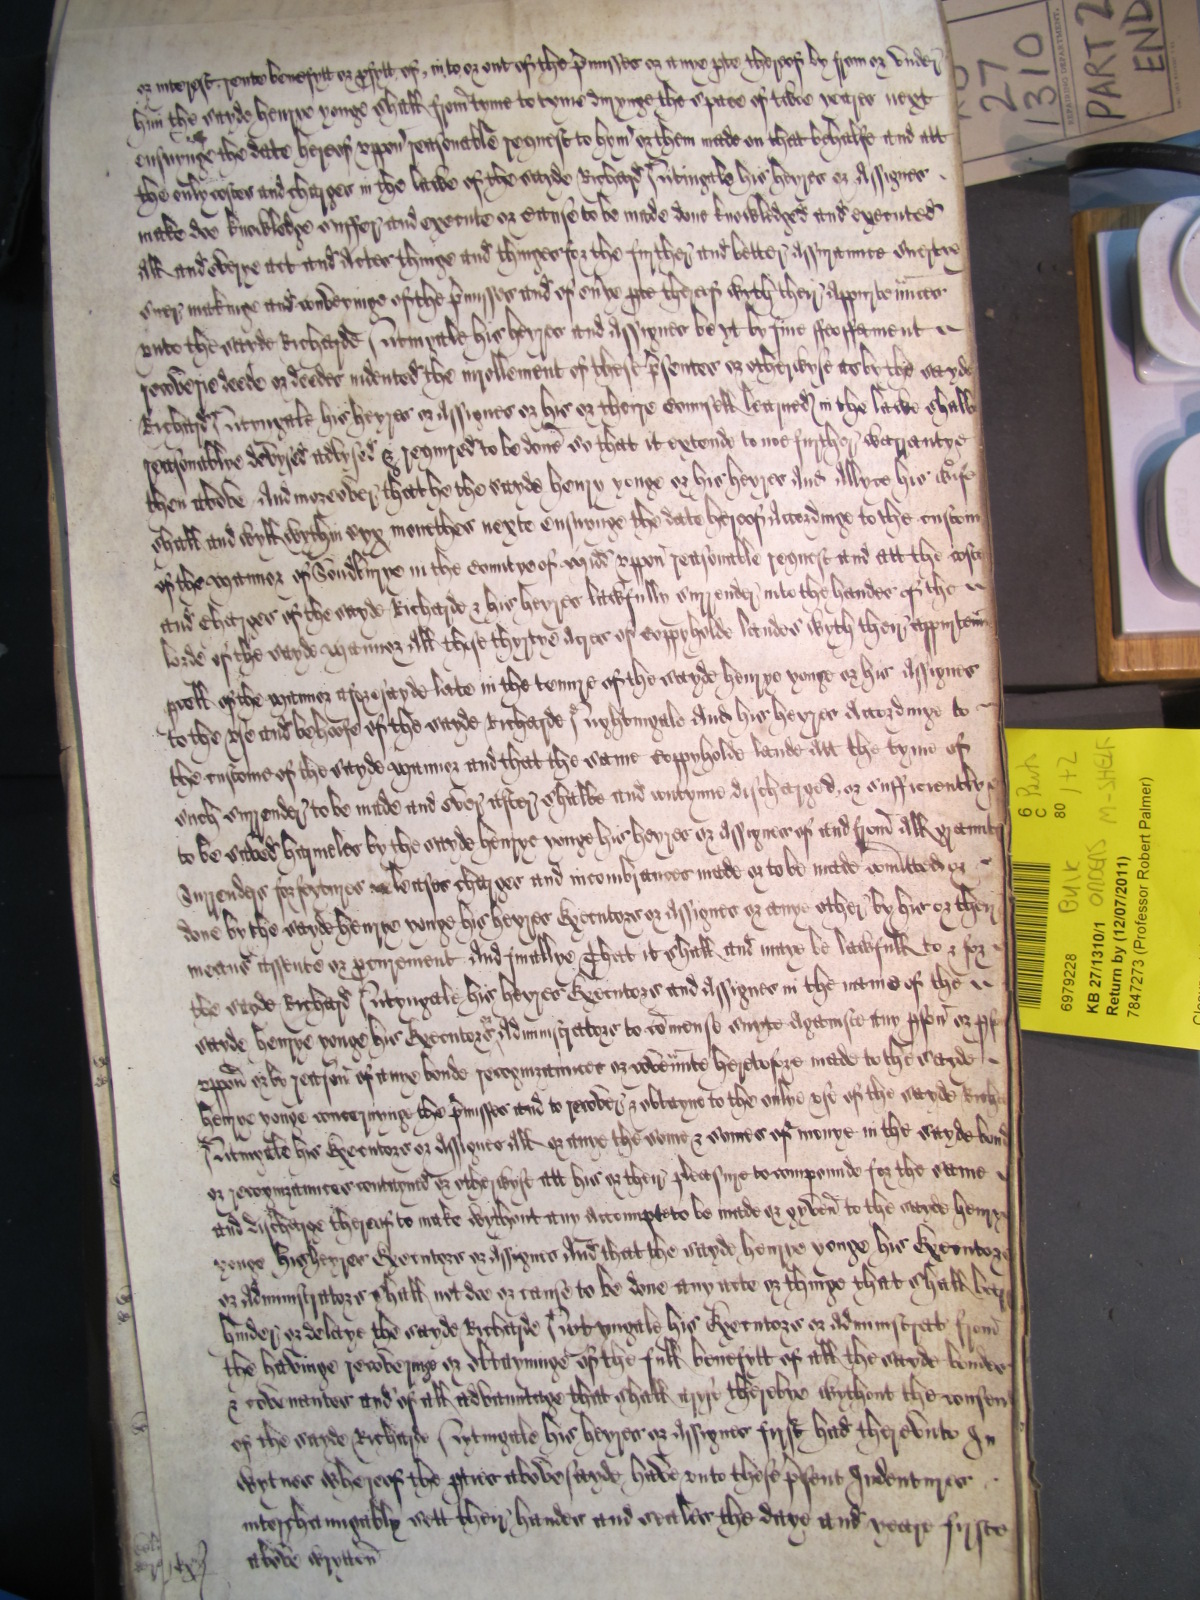 or interest rente benefytt or pfytt of, in to or out of the pmisses or anye pte therof by from or under
him the sayde henrye yonge shall from tyme to tyme duringe the space of twoe yeares next
ensuynge the date hereof uppon reasonable request to hym or them made on that behalfe and att
the only costes and charges in the lawe of the sayde Richard Nitingale his heyres or Assignes
make doe knowledge suffer and execute or cause to be made done knowledged and executed
All and everye act and Actes thinge and thinges for the further and better Assuraunce suertye
suer makinge and conveyinge of the pmisses and of evrye pte therof wyth their Appurtenunces
unto the sayde Richarde Nitingale his heyres and Assignes be yt by fine feoffament
recoverie deede or deedes indented the inrollement of these psentes or otherwyse as by the sayde
Richard Nitingale his heyres or Assignes or his or theire Counsell learned in the lawe shalbe
reasonablye devysed advysed & requyred to be done so that it extende to noe further warrantye
then above And moreover that he the sayde henry yonge or his heyres And Allyce his wife
shall and wyll wythin syx monethes nexte ensuynge the date hereof Accordinge to the custom
of the mannor of in the Countye of Midd uppon reasonable request and att the coste
and Charges of the sayde Richarde & his heyres lawfully surrender into the handes of the
lorde of the sayde mannor All those thyrtye Acres of Coppyholde landes wyth their appurtenn
pcell of the mannor aforesayde late in the tenure of the sayde henrye yonge or his Assignes
to the use and behoofe of the sayde Richarde Nightyngale And his heyres Accordinge to
the custome of the sayde mannor and that the same Coppyholde lande Att the tyme of
such surrender to be made and ever after shalbe and contynue discharged, or sufficiently
to be saved harmeles by the sayde henrye yonge his heyres or Assignes of and from All grauntes
Surrenders forfeytures leases charges and incombraunces made or to be made comitted or
done by the sayde henrye yonge his heyres Executors or Assignes or anye other by his or their
meanes assente or pcurement And finallye That it shall and maye be lawfull to & for
the sayde Richard Nityngale his heyres Executors and Assignes in the name of the
sayde henrye yonge his Executors Administrators to comense suyte Agaynste any pson or psons
uppon or by reason of anye bonde recognizaunces or covenunte heretofore made to the sayde
henrye yonge concernynge the pmisses and to recover & obtayne to the onlye use of the sayde Richa
Nitingale his Executors or Assignes All or anye the some & somes of monye in the sayde bond
or recognizaunces contayned or otherwyse att his or their pleasure to compounde for the same
and discharge therof to make wythout any Accompte to be made or gyven to the sayde henrye
yonge his heyres Executors or Assignes And that the sayde henrye yonge his Executors
or Administrators shall not doe or cause to be done any acte or thinge that shall
hinder or delaye the sayde Richarde Nitingale his Executors or administratt from
the havinge recoveringe or obtayninge of the full benefytt of all the sayde bondes
& covenantes and of all advauntage that shall aryse therebye wythout the consent
of the sayde Richarde Nytingale his heyres or Assignes first had thereunto In
wytnes wherof the pties abovesayde have unto these psent Indentures
interchaungably sett their handes and seales the daye and yeare firste
above wrytten
27
1310
REPAIRING DEPARTMENT.
PART 2
END
6 Part
C
80 1+2
6979228 Bulk
KB 27/1310/1 ORDERS M-SHELF
Return by (12/07/2011)
7847273 (Professor Robert Palmer)